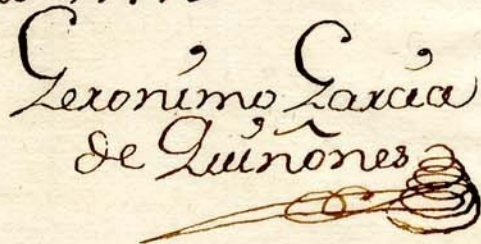 Geronimo Garcia
de Quiñones